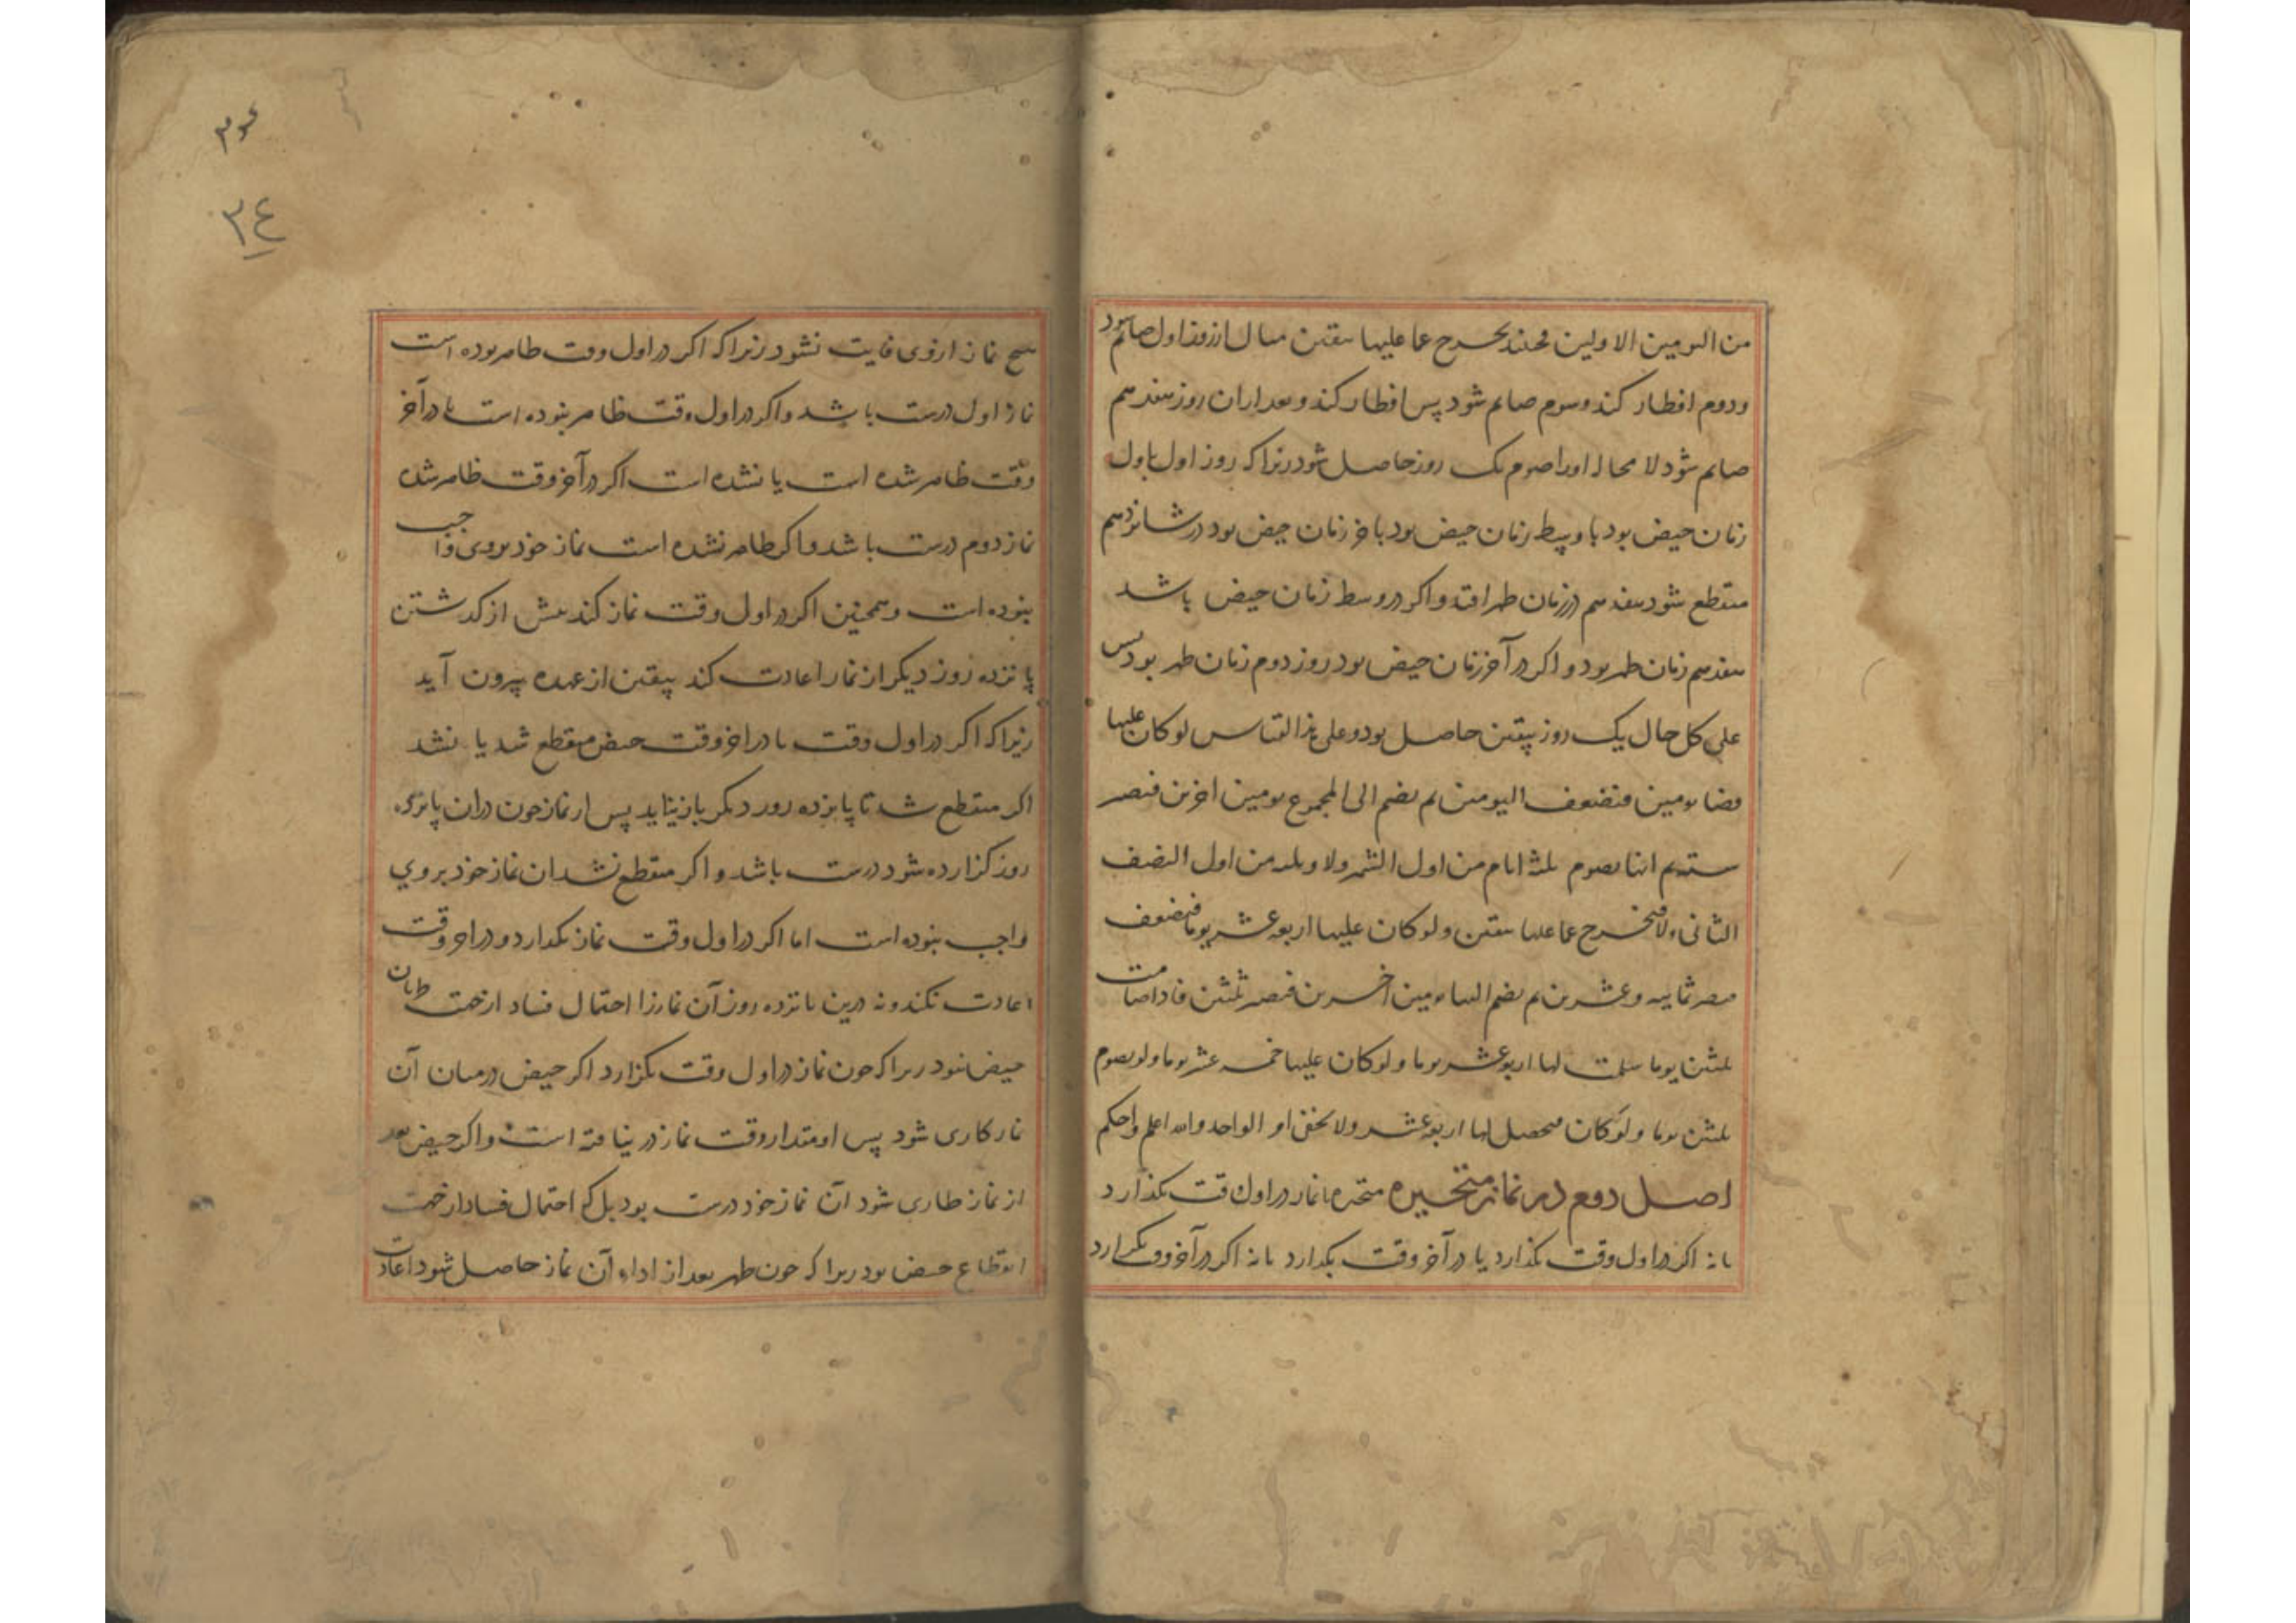 من الیومین الاولین فحینئذ یخرج عما علیها بیقین مثال از روز اول صائم شود
ودوم افطار کند وسوم صایم شود پس افطار کند وبعد ازان روز هفدهم
صایم شود لا محاله اورا صوم یک روز حاصل شود زیرا که روز اول باول
زمان حیض بود یا وسط زمان حیض بود یا آخر زمان حیض بود در شانزدهم
منقطع شود هفدهم در زمان طهر افتد واکر در وسط زمان حیض باشد
هفدهم زمان طهر بود واکر در آخر زمان حیض بود روز دوم زمان طهر بود پس
علی کل حال یک روز بیقین حاصل بود وعلی هذا القیاس لو کان علیها
قضا یومین فتضعف الیومین ثم یضم الی المجموع یومین اخرین فتصیر
ستة ثم انها تصوم ثلثة ایام من اول الشهر ولا وثلثه من اول النصف
الثانی ولا فیخرج عما علیها بیقین ولو کان علیها اربعة عشر یوما فتضعف
فتصیر ثمانیه وعشرین ثم یضم الیها یومین اخرین فتصیر ثلثین فاذا صامت
ثلثین یوما سلمت لها اربعة عشر یوما ولو کان علیها خمسه عشر یوما ولو تصوم
ثلثین یوما ولو کان فیحصل لها اربعة عشر ولا یخفی او الواحد والله اعلم واحکم
اصل دوم در نماز متحیره متحیره یا نماز در اول وقت بکذارد
یا نه اکر در اول وقت بکذارد یا در آخر وقت بکذارد یا نه اکر در آخر وقت بکذارد
۳۴
۳۴
هیچ نماز از وی فایت نشود زیرا که اکر در اول وقت طاهر بوده است
نماز اول درست باشد واکر در اول وقت طاهر نبوده است یا در آخر
وقت طاهر شده است یا نشده است اکر در آخر وقت طاهر شده
نماز دوم درست باشد واکر طاهر نشده است نماز خود بروی واجب
نبوده است وهمچنین اکر در اول وقت نماز کند پیش از کذشتن
پانزده روز دیکر از نماز اعادت کند بیقین از عهده بیرون آید
زیرا که اکر در اول وقت یا در اخر وقت حیض منقطع شد یا نشد
اکر منقطع شد تا پانزده روز دیکر باز نیاید پس ار نماز چون دران پانزده
روز کزارده شود درست باشد واکر منقطع نشد ان نماز خود بروی
واجب نبوده است اما اکر در اول وقت نماز بکذارد ودر اخر وقت
اعادت نکند ونه درین پانزده روز آن نماز را احتمال فساد از جهت طریان
حیض نبود زیرا که چون نماز در اول وقت بکزارد اکر حیض در میان آن
نماز طاری شود پس او مقدار وقت نماز در نیافته است واکر حیض بعد
از نماز طاری شود آن نماز خود درست بود بل که احتمال فساد از جهت
انقطاع حیض بود زیرا که چون طهر بعد از اداء آن نماز حاصل شود اعادت